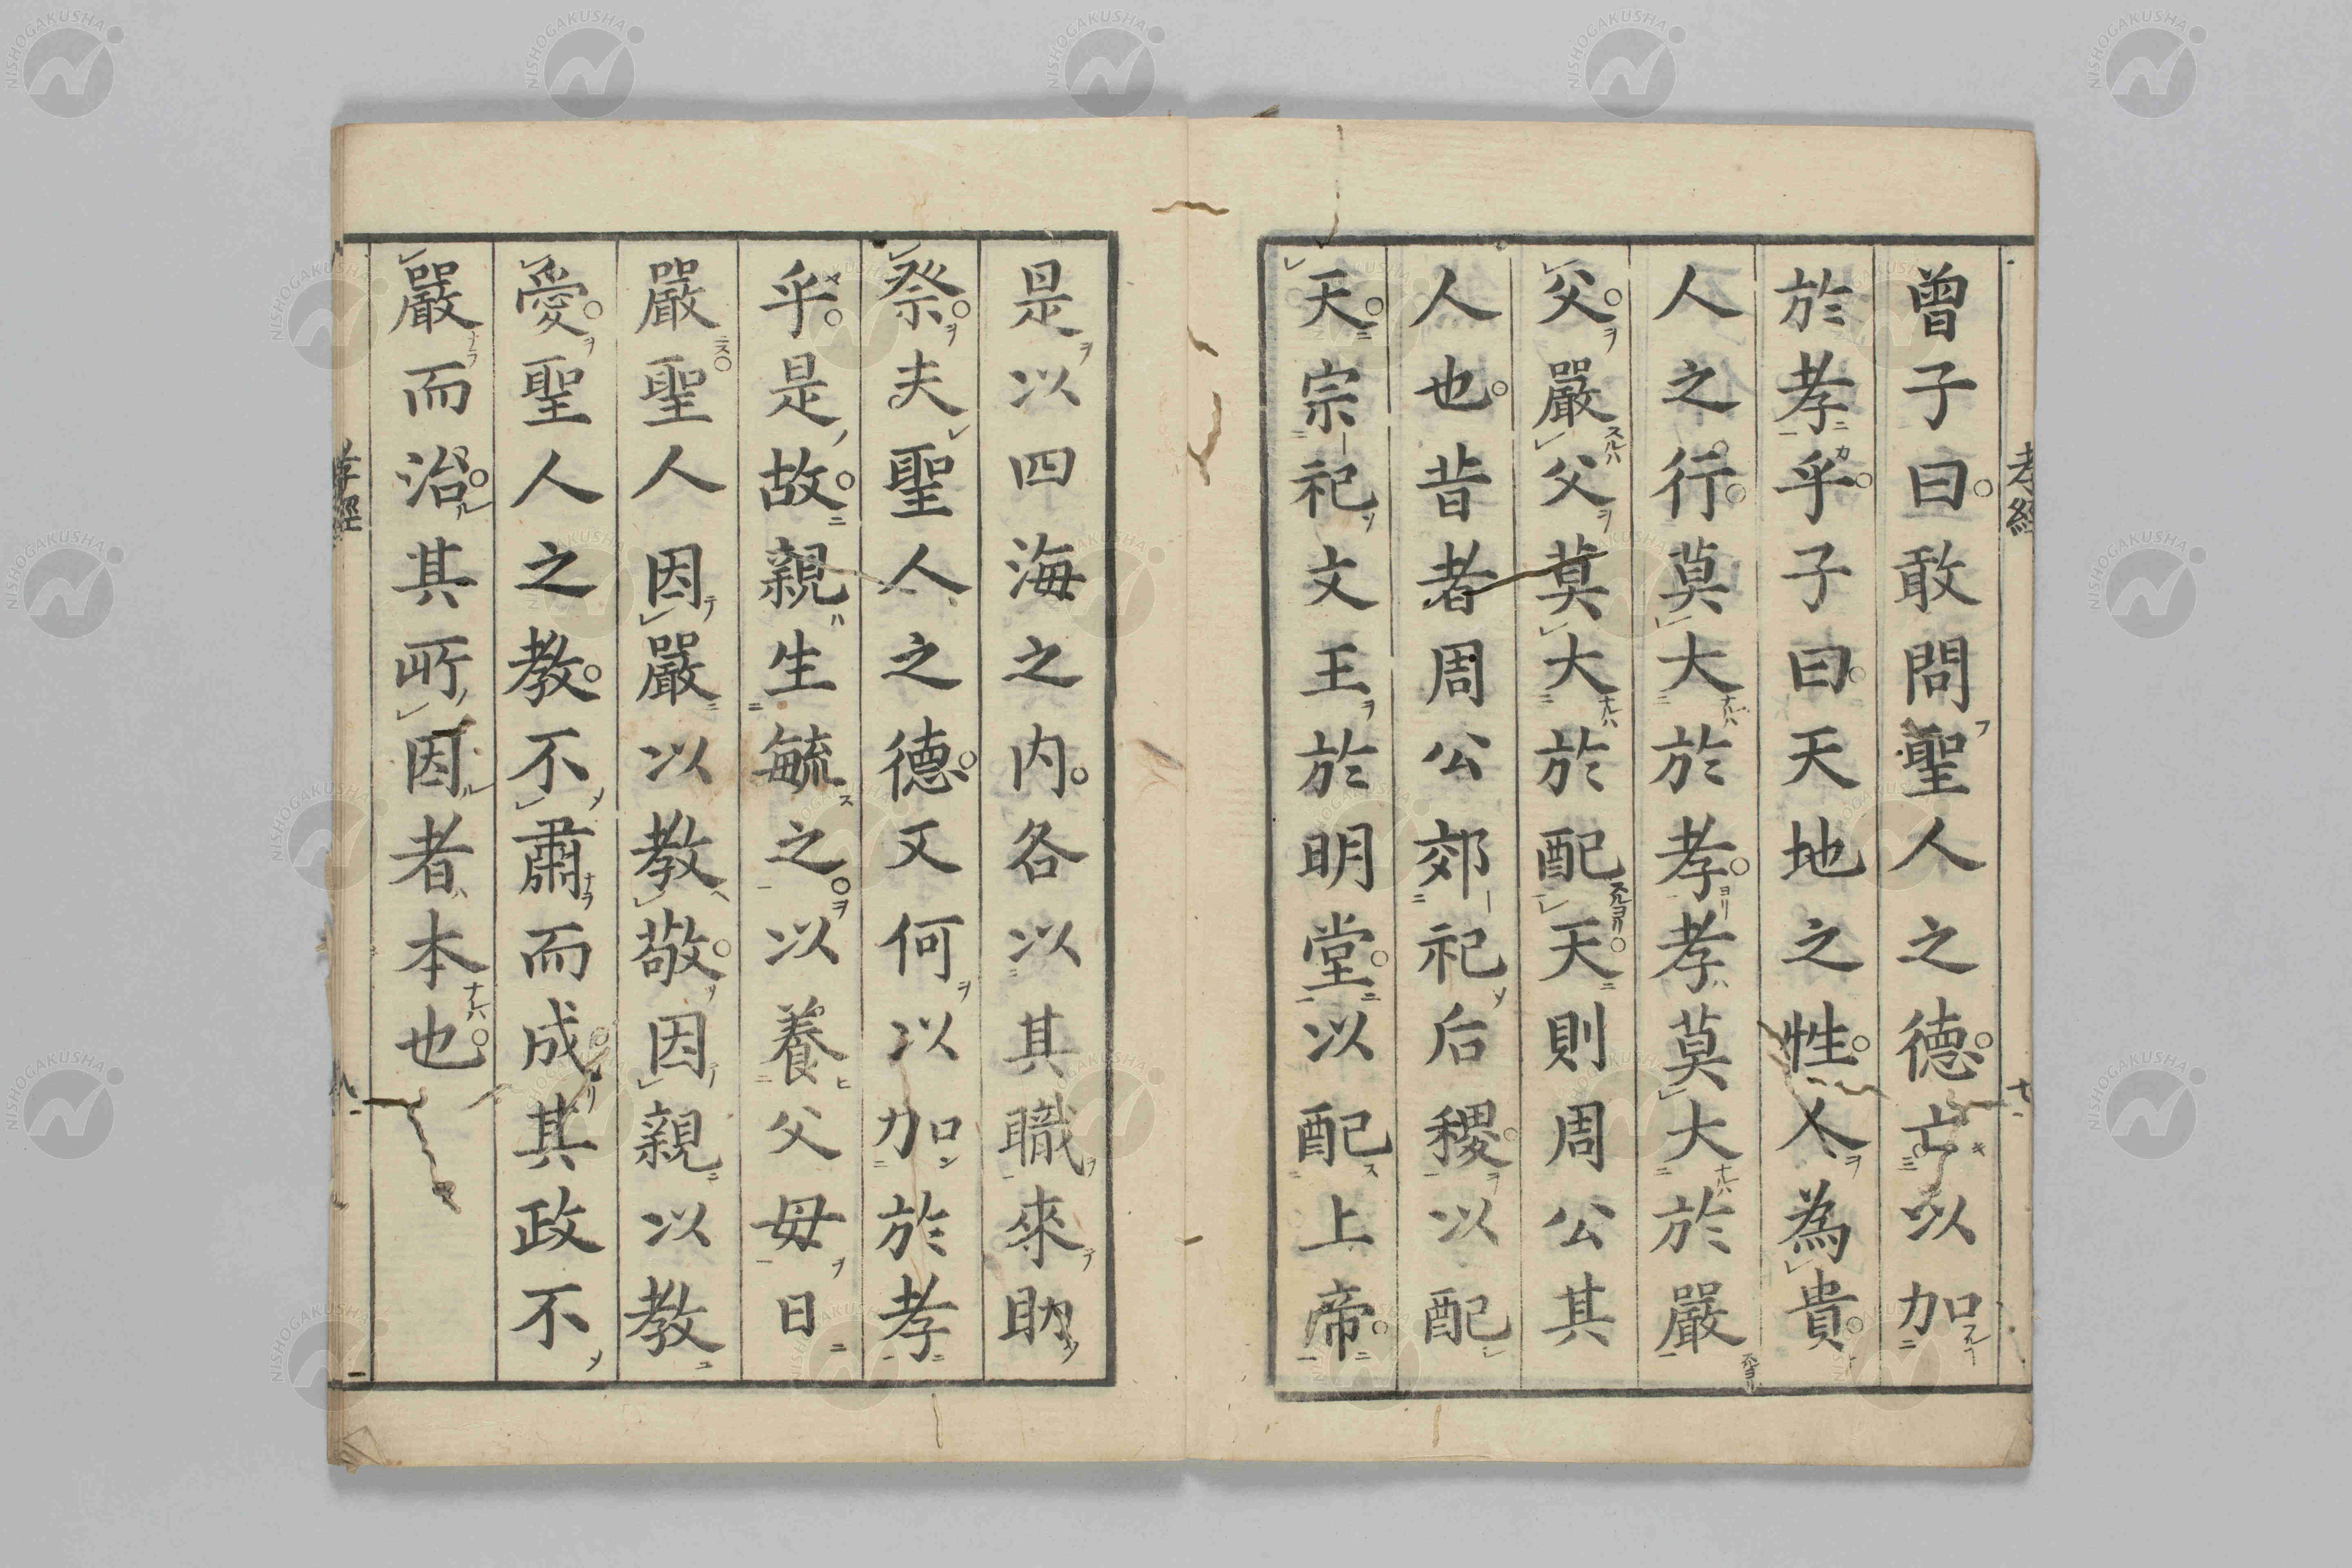 孝經
曾子曰敢問聖人之德亡以加
於孝乎子曰天地之性人為貴
人之行莫大於孝孝莫大於嚴
父嚴父莫大於配天則周公其
人也昔者周公郊祀后稷以配
天宗祀文王於明堂以配上帝
是以四海之内各以其職來助
祭夫聖人之德又何以加於孝
乎是故親生毓之以養父母日
嚴聖人因嚴以教敬因親以教
愛聖人之教不肅而成其政不
嚴而治其所因者本也
孝經
NISHOGAKUSHA